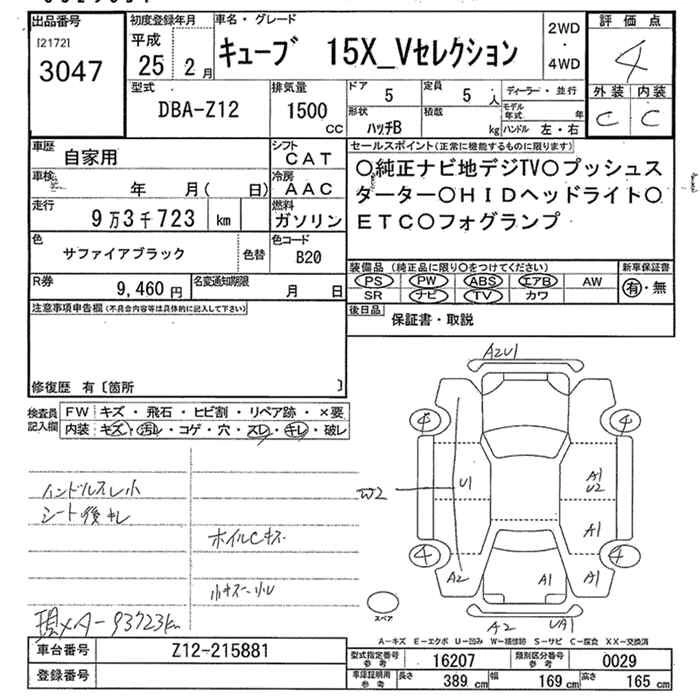 出品番号
[2172]
3047
初度登録年月
平成
25 2月
車名・グレード
キューブ 15X_Vセレクション
2WD
・
4WD
評価点
4
外装 内装
C C
型式
DBA-Z12
排気量
1500
CC
ドア
5
定員
5 人
ディーラー・並行
モデル年式 年
形状
ハッチB
積載
kg
ハンドル 左・右
車歴
自家用
シフト
CAT
車検
年 月( 日)
冷房
AAC
走行
9万3千723 km
燃料
ガソリン
色
サファイアブラック
色替
色コード
B20
R券
9,460 円
名変通知期限
月 日
セールスポイント(正常に機能するものに限ります)
○純正ナビ地デジTV○プッシュス
ターター○HIDヘッドライト○
ETC○フォグランプ
装備品(純正品に限り○をつけてください)
PS PW ABS エアB AW
SR ナビ TV カワ
新車保証書
有・無
後日品
保証書・取説
注意事項申告欄(不具合内容等は具体的に記入して下さい)
修復歴 有〔箇所 〕
検査員
記入欄
FW キズ・飛石・ヒビ割・リペア跡・×要
内装 キズ・汚レ・コゲ・穴・スレ・キレ・破レ
ハンドルスレ小
シート後キレ
ホイルCキズ
現メーター93723km
A2U1
4 4
W2
U1
A1
U2
A1
4 4
A2
A1
A1
A2
UA1
スペア
A-キズ E-エクボ U-凹み W-補修跡 S-サビ C-腐食 XX-交換済
車台番号
Z12-215881
登録番号
型式指定番号
参考
16207
類別区分番号
参考
0029
車庫証明用
参考
長さ 389 cm
幅 169 cm
高さ 165 cm